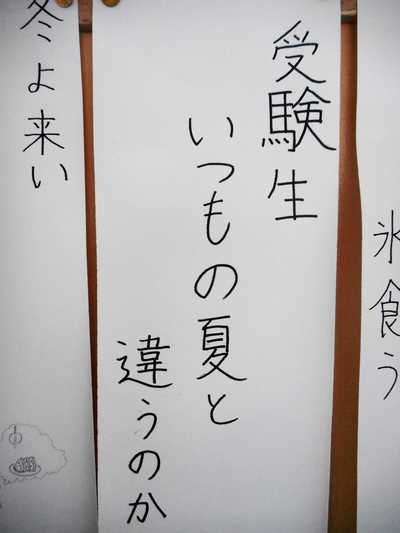 氷食う
受験生
いつもの夏と
違うのか
冬よ来い